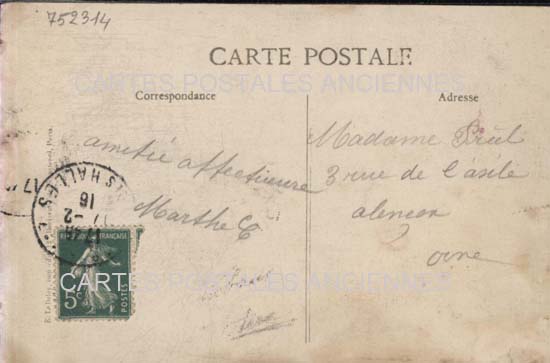 752314
CARTE POSTALE
CARTES POSTALES ANCIENNES
Correspondance
Adresse
amitié affectueuse
Marthe C
Madame
3 rue de l'asile
alençon
orne
HALLES
17
16
-2
REPUBLIQUE FRANÇAISE
5c
POSTES
CARTES POSTALES ANCIENNES